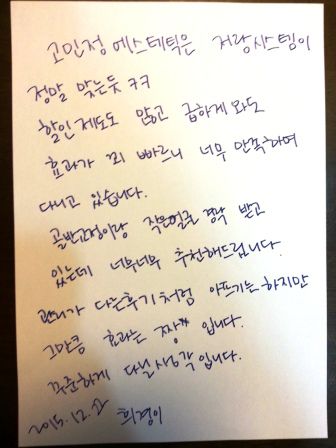 고민정 에스테틱은 저랑 시스템이
정말 맞는듯 ㅋㅋ
할인 제도도 많고 급하게 와도
효과가 꾀 빠르니 너무 만족하며
다니고 있습니다.
골반교정이랑 작은얼굴 경락 받고
있는데 너무너무 추천해드립니다.
관리가 다른후기처럼 아프기는 하지만
그만큼 효과는 짱** 입니다.
꾸준하게 다닐 생각 입니다.
2015.12.2 희경이